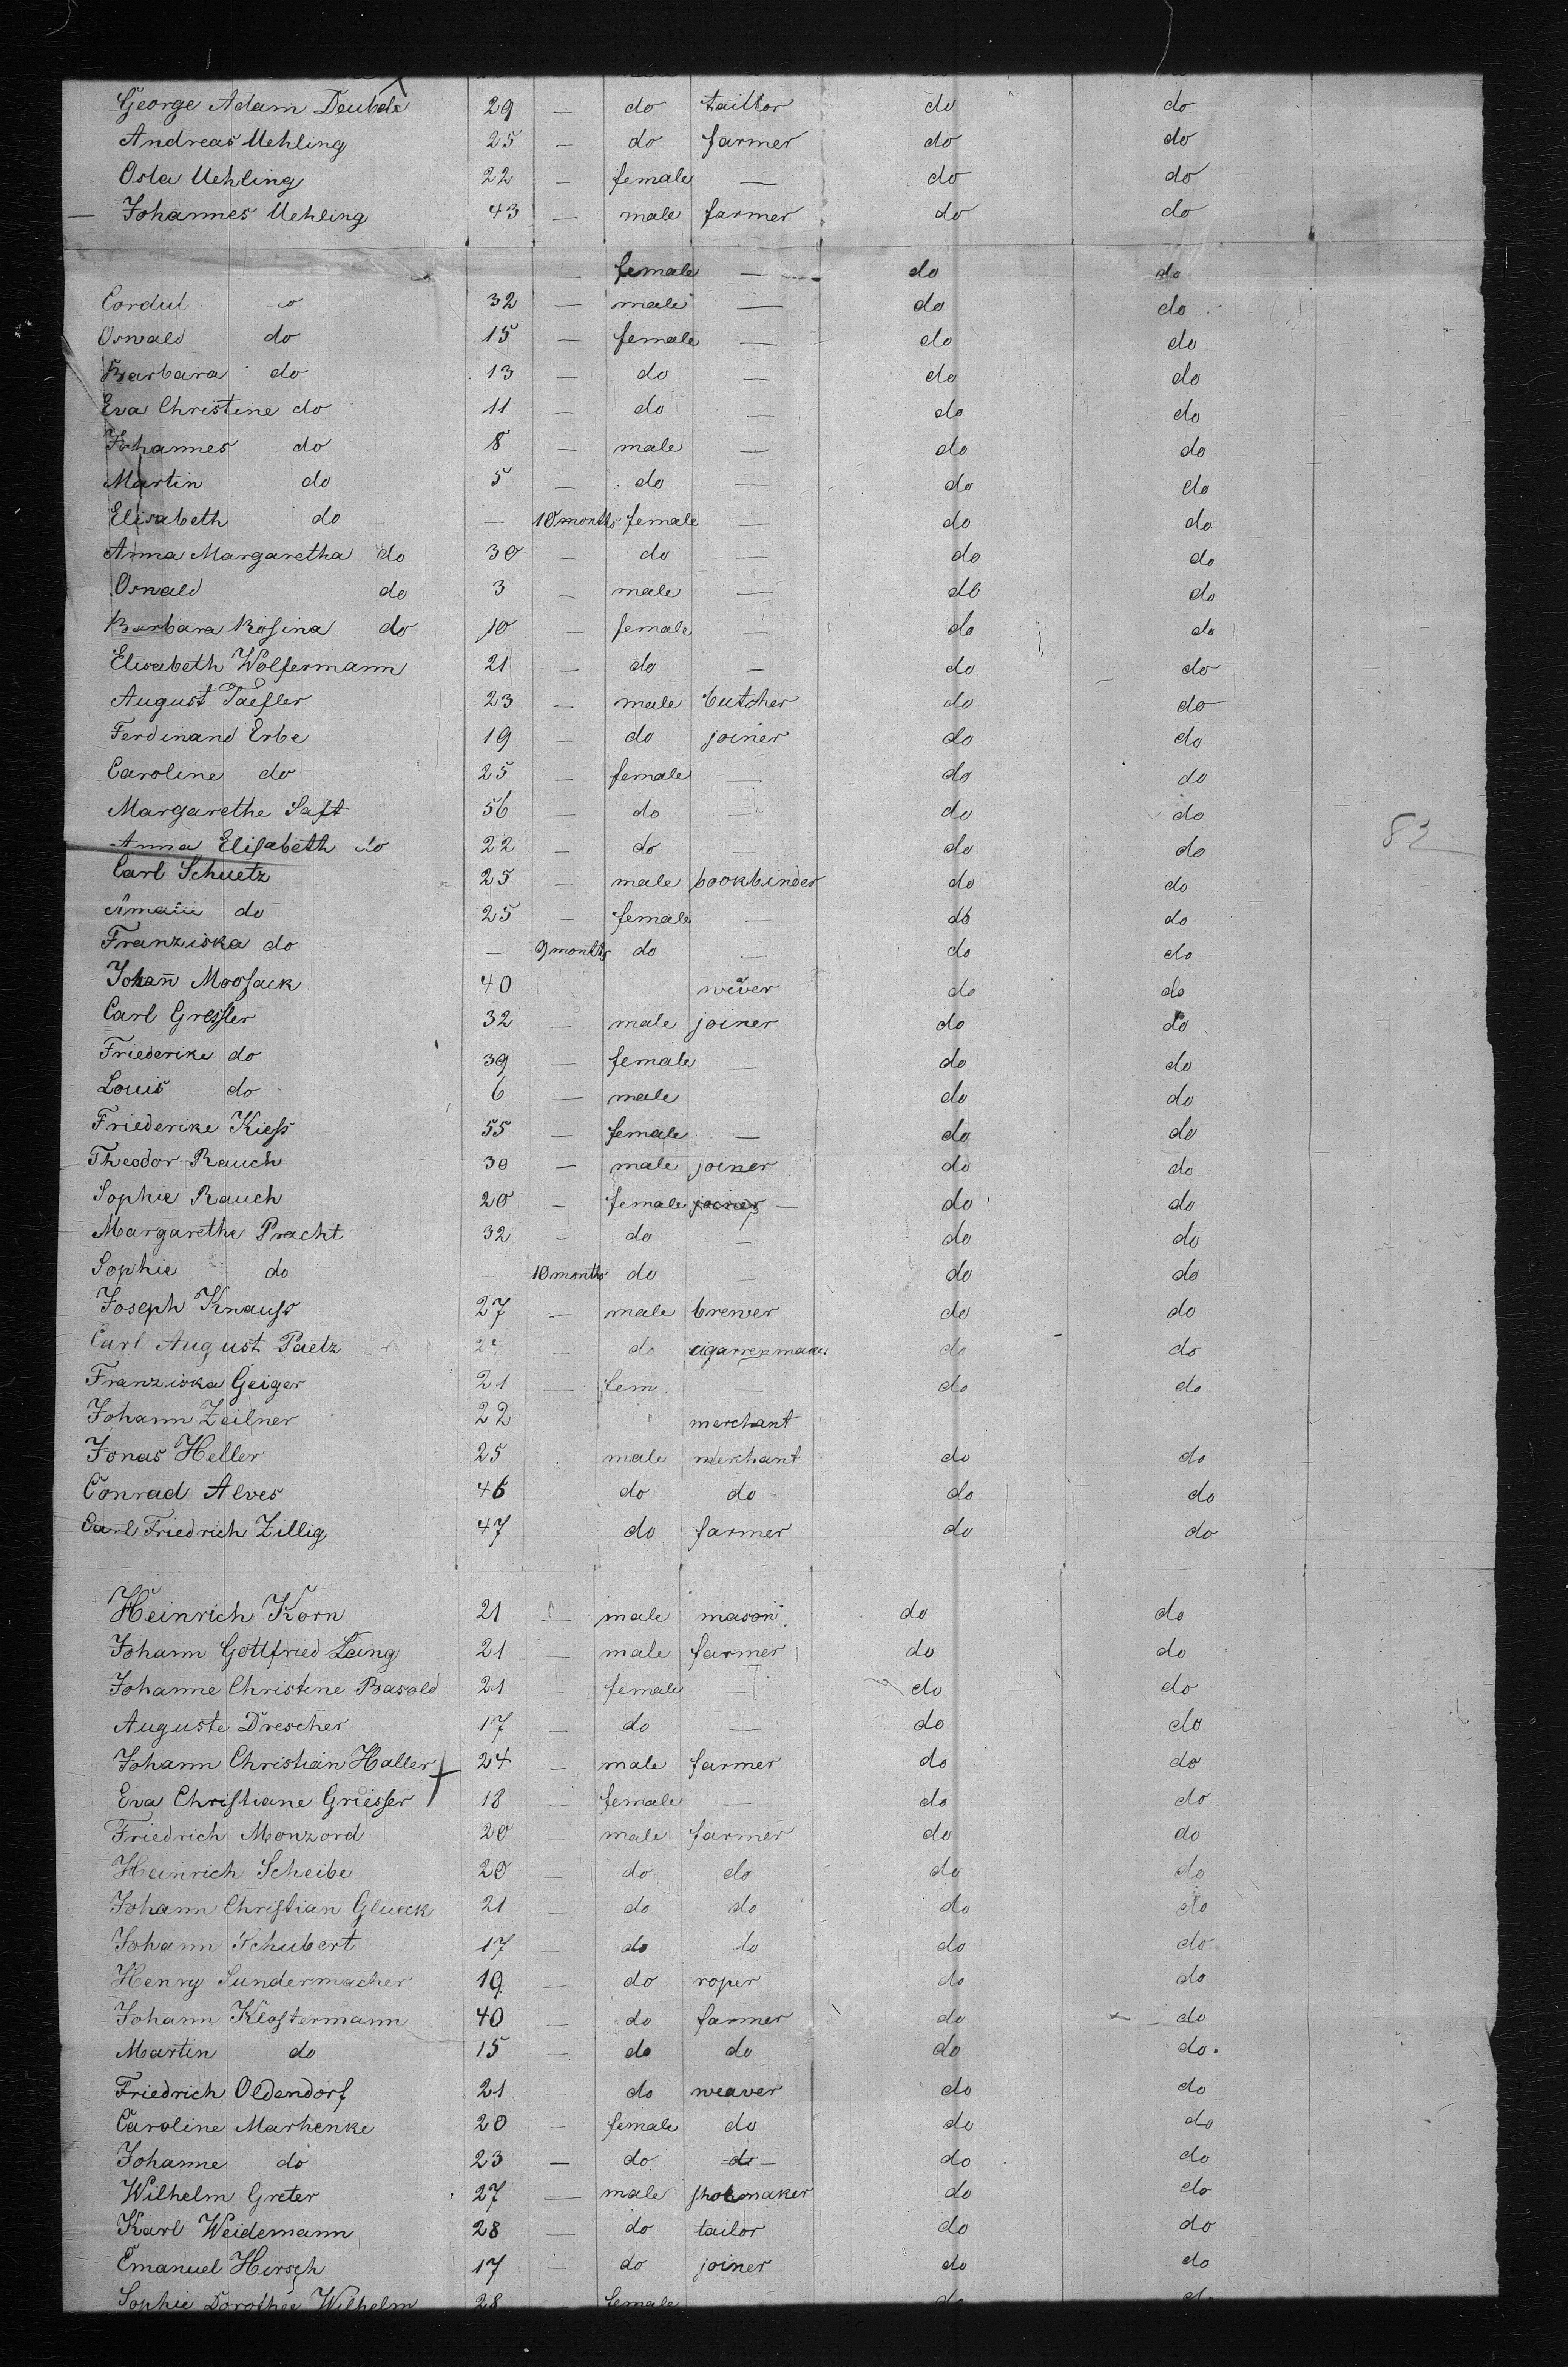 George Adam Deubele 29 — do taillor do do
Andreas Uehling 25 — do farmer do do
Osla Uehling 22 — female — do do
— Johannes Uehling 43 — male farmer do do
— female — do do
Cordul 32 — male — do do
Oswald do 15 — female — do do
Barbara do 13 — do — do do
Eva Christine do 11 — do — do do
Johannes do 8 — male — do do
Martin do 5 — do — do do
Elisabeth do — 10 months female — do do
Anna Margaretha do 30 — do — do do
Oswald do 3 — male — do do
Barbara Rosina do 10 — female — do do
Elisabeth Wolfermann 21 — do — do do
August Taefler 23 — male butcher do do
Ferdinand Erbe 19 — do joiner do do
Caroline do 25 — female — do do
Margarethe Saft 56 — do — do do
Anna Elisabeth do 22 — do — do do 83
Carl Schuetz 25 — male bookbinder do do
do 25 — female — do do
Franziska do — 9 months do — do do
Johañ Moosack 40 wever do do
Carl Gressler 32 — male joiner do do
Friederike do 39 — female — do do
Louis do 6 — male do do
Friederike Kiess 55 — female — do do
Theodor Rauch 30 — male joiner do do
Sophie Rauch 20 — female joiner — do do
Margarethe Pracht 32 — do — do do
Sophie do — 10 months do — do do
Joseph Knauss 27 — male brewer do do
Carl August Paetz — do cigarrenmaker do do
Franziska Geiger 21 — fem. — do do
Johann Zeilner 22 merchant
Jonas Heller 25 male merchant do do
Conrad Alves 46 do do do do
Carl Friedrich Zillig 47 do farmer do do
Heinrich Korn 21 — male mason do do
Johann Gottfried Lang 21 — male farmer do do
Johanne Christine Basold 21 — female — do do
Auguste Drescher 17 — do — do do
Johann Christian Haller 24 — male farmer do do
Eva Christiane Griesser 18 — female — do do
Friedrich Monzord 20 — male farmer do do
Heinrich Scheibe 20 — do do do do
Johann Christian Glueck 21 — do do do do
Johann Schubert 17 — do do do do
Henry Sundermacher 19 — do roper do do
Johann Klostermann 40 — do farmer do do
Martin do 15 — do do do do.
Friedrich Oldendorf 21 do weaver do do
Caroline Marhenke 20 — female do do do
Johanne do 23 — do do — do do
Wilhelm Greter 27 — male shoemaker do do
Karl Weidemann 28 — do tailor do do
Emanuel Hirsch 17 — do joiner do do
Sophie Dorothee Wilhelm 28 female do do